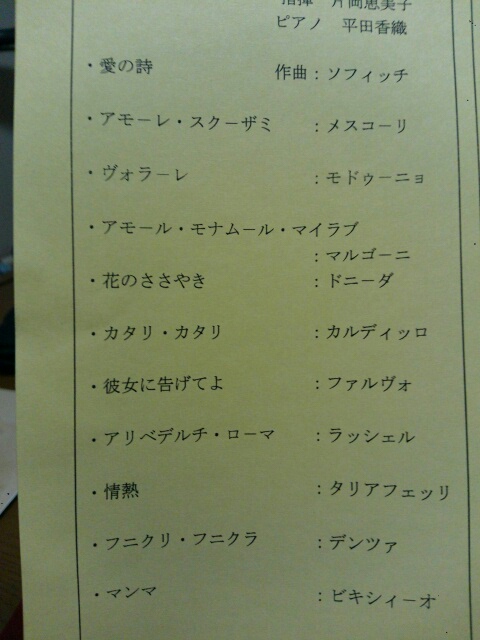 指揮 片岡恵美子
ピアノ 平田香織
・愛の詩 作曲：ソフィッチ
・アモーレ・スクーザミ ：メスコーリ
・ヴォラーレ ：モドゥーニョ
・アモール・モナムール・マイラブ
：マルゴーニ
・花のささやき ：ドニーダ
・カタリ・カタリ ：カルディッロ
・彼女に告げてよ ：ファルヴォ
・アリベデルチ・ローマ ：ラッシェル
・情熱 ：タリアフェッリ
・フニクリ・フニクラ ：デンツァ
・マンマ ：ビキシィーオ